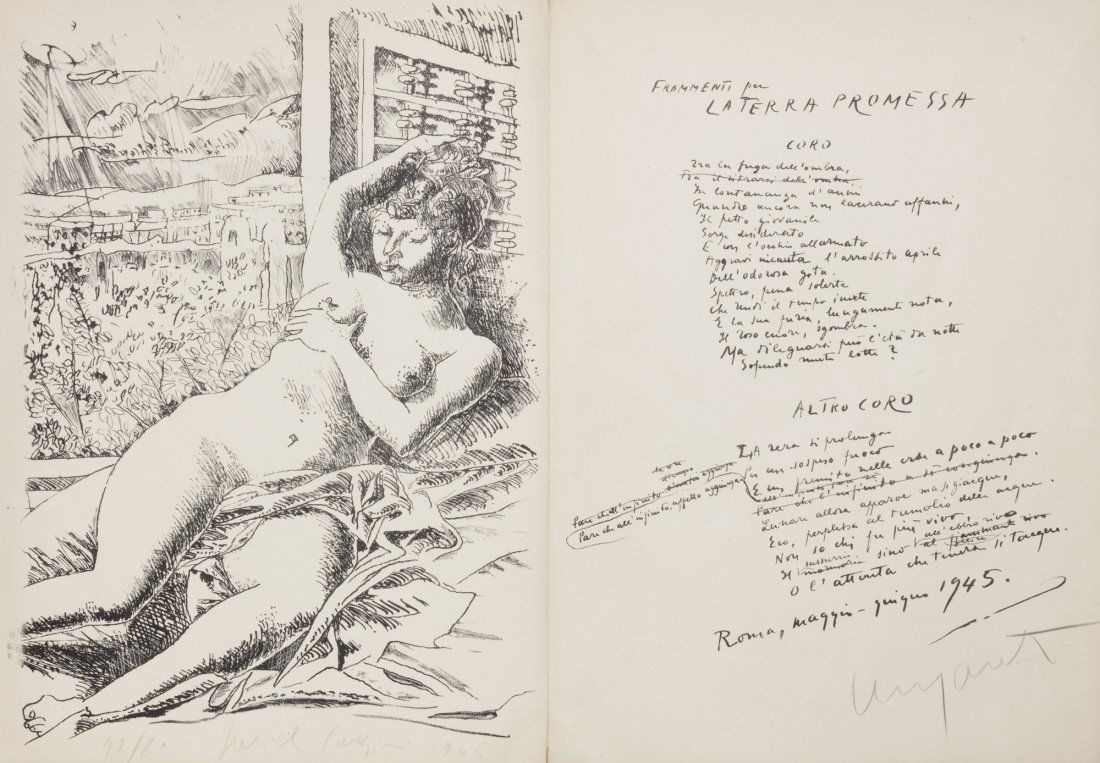 FRAMMENTI per
LA TERRA PROMESSA
CORO
Tra la fuga dell'ombra,
Tra il ritrarsi dell'ombra,
In lontananza d'anni
Quando ancora non laceravano affanni,
Il petto giovanile
Sorge desiderato
E con l'occhio allarmato
Aggravi incauta l'arrossito aprile
Dell'odorosa gota.
Spettro, pena solerte
Che rendi il tempo inerte
E la sua furia lungamente nota,
Il roso cuore, sgombra.
Ma dileguarsi può l'età da notte
Sopendo mute lotte?
ALTRO CORO
LA sera si prolunga
Per un sospeso fuoco
E un fremito nelle erbe a poco a poco
non
Pare che all'infinito aggiunga
Pare che all'infinito, aggiunga
Pare che l'infinito a sé congiunga.
Lunare allora apparve
Eco, perplessa al tremolio delle acque.
Non so chi fu più vivo,
Il sussurrio sino all'ebbro rivo
O l'attenta che tenera si tacque.
Roma, maggio-giugno 1945.
Ungaretti
22/80 Pericle Fazzini 1945